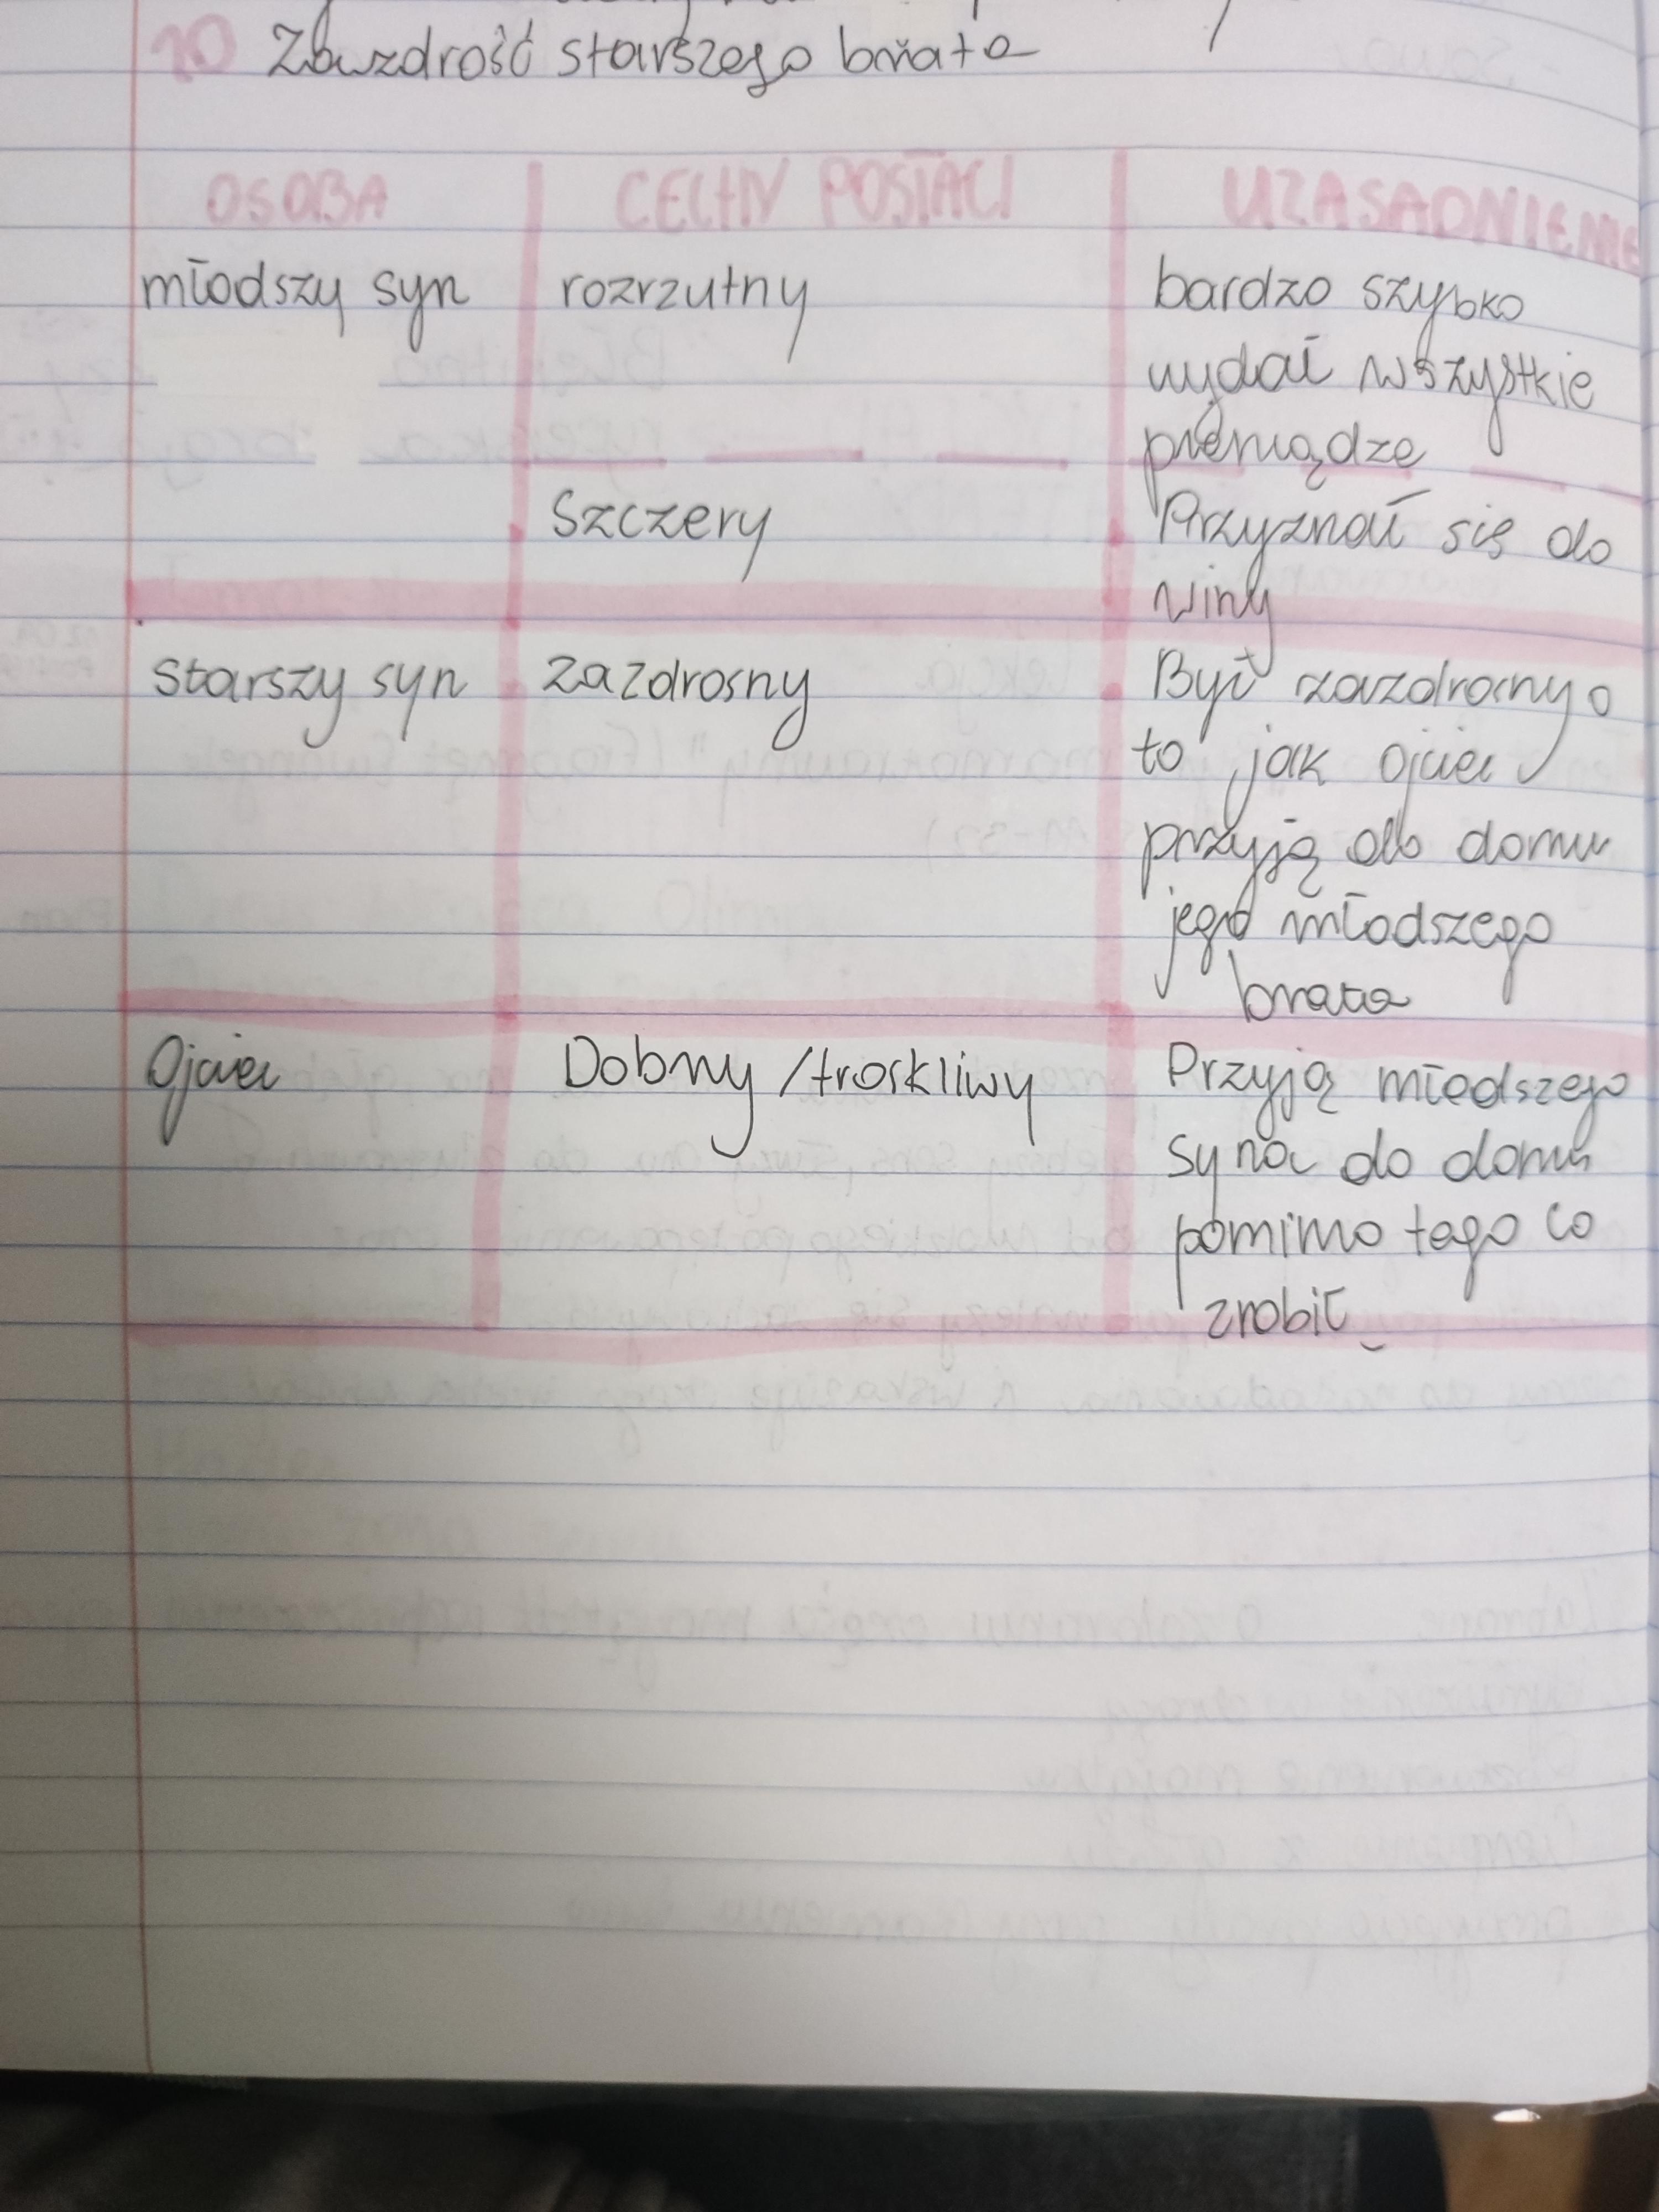 10 Zazdrość starszego brata
OSOBA CECHY POSTACI UZASADNIENIE
młodszy syn rozrzutny bardzo szybko
wydał wszystkie
pieniądze
Szczery Przyznał się do
winy
starszy syn zazdrosny Był zazdrosny o
to jak ojciec
przyją do domu
jego młodszego
brata
Ojciec Dobry /troskliwy Przyją młodszego
syna do domu
pomimo tego co
zrobił